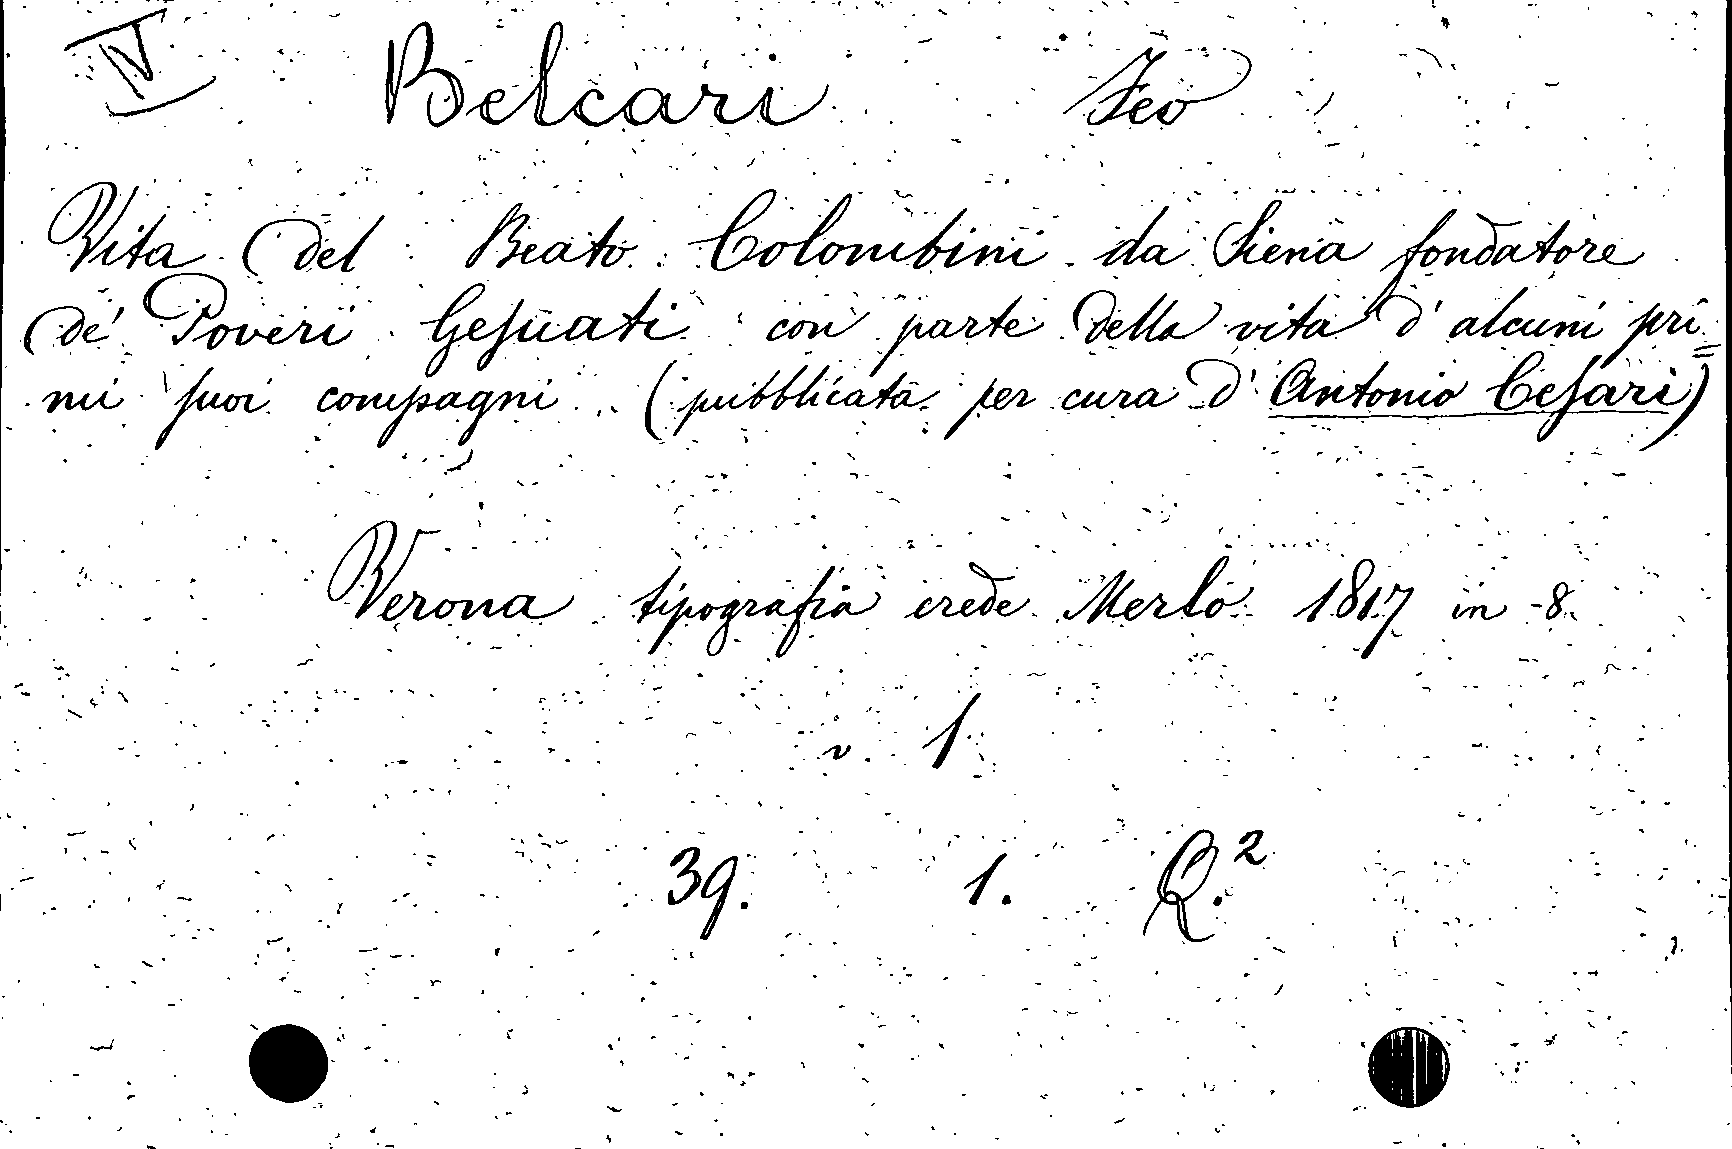 IV
Belcari Feo
Vita del Beato Colombini da Siena fondatore
de' Poveri Gesuati con parte della vita d' alcuni pri=
mi suoi compagni (pubblicata per cura d' Antonio Cesari)
Verona tipografia erede Merlo 1817 in 8.
v 1
39. 1. Q.²